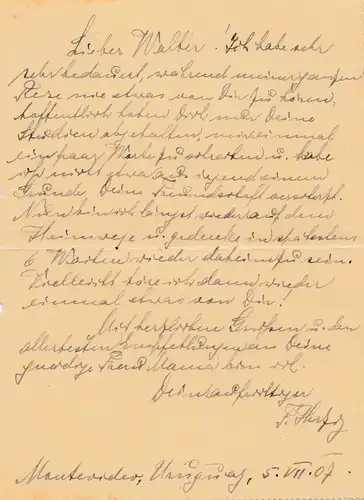 Lieber Walter! Ich habe sehr
sehr bedauert, während meiner ganzen
Reise nie etwas von Dir zu hören,
hoffentlich haben Dich nur Deine
Studien abgehalten, mir einmal
ein paar Worte zu schreiben u. habe
ich nicht etwa aus irgend einem
Grunde Deine Freundschaft verscherzt.
Nun bin ich längst wieder auf dem
Heimwege u. gedenke in spätestens
6 Wochen wieder daheim zu sein.
Vielleicht höre ich dann wieder
einmal etwas von Dir!
Mit herzlichen Grüßen u. den
allerbesten Empfehlungen an Deine
gnädige Frau Mama bin ich
Dein aufrichtiger
Montevideo, Uruguay, 5. VII. 07.